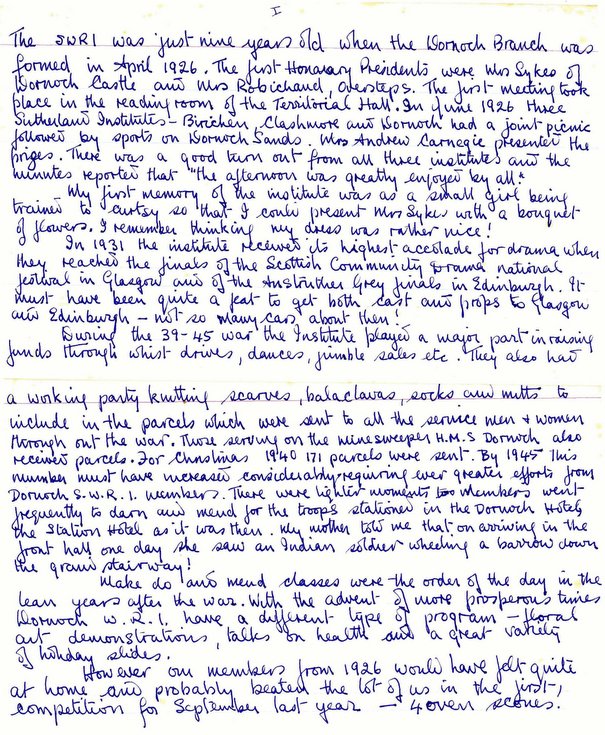 I
The SWRI was just nine years old when the Dornoch Branch was
formed in April 1926. The first Honarary Presidents were Mrs Sykes of
Dornoch Castle and Mrs Robichand, Oversteps. The first meeting took
place in the reading room of the Territorial Hall. In June 1926 three
Sutherland Institutes - Birichen, Clashmore and Dornoch had a joint picnic
followed by sports on Dornoch Sands. Mrs Andrew Carnegie presented the
prizes. There was a good turn out from all three institutes and the
minutes reported that "the afternoon was greatly enjoyed by all."
My first memory of the institute was as a small girl being
trained to curtsy so that I could present Mrs Sykes with a bouquet
of flowers. I remember thinking my dress was rather nice!
In 1931 the institute received its highest accolade for drama when
they reached the finals of the Scottish Community Drama national
festival in Glasgow and of the Anstruther Grey finals in Edinburgh. It
must have been quite a feat to get both cast and props to Glasgow
and Edinburgh - not so many cars about then!
During the 39-45 war the Institute played a major part in raising
funds through whist drives, dances, jumble sales etc. They also had
a working party knitting scarves, balaclavas, socks and mitts to
include in the parcels which were sent to all the service men + women
through out the war. Those serving on the minesweeper H.M.S Dornoch also
received parcels. For Christmas 1940 171 parcels were sent. By 1945 this
number must have increased considerably requiring ever greater efforts from
Dornoch S.W.R.I. members. There were lighter moments too Members went
frequently to darn and mend for the troops stationed in the Dornoch Hotel,
the Station Hotel as it was then. My mother told me that on arriving in the
front hall one day she saw an Indian soldier wheeling a barrow down
the grand stairway!
Make do and mend classes were the order of the day in the
lean years after the war. With the advent of more prosperous times
Dornoch W.R.I. have a different type of program - floral
art demonstrations, talks on health and a great variety
of holiday slides.
However our members from 1926 would have felt quite
at home and probably beaten the lot of us in the first,
competition for September last year - 4 oven scones.